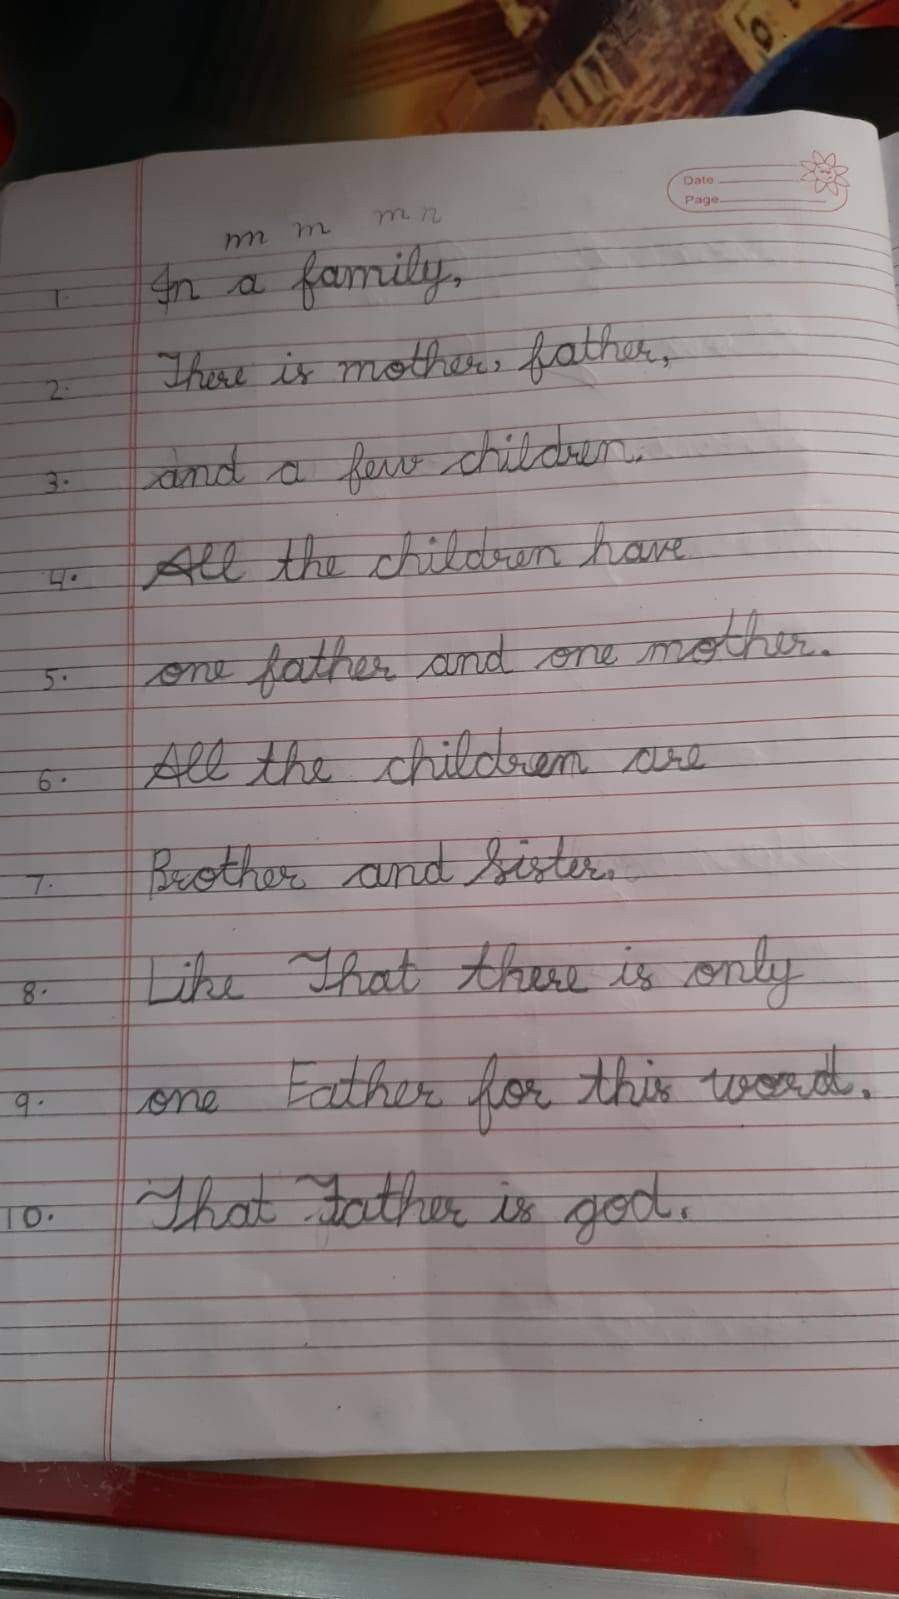 Date
Page
m m m n
1. In a family,
2. There is mother, father,
3. and a few children.
4. All the children have
5. one father and one mother.
6. All the childrem are
7. Brother and Sister.
8. Like That there is only
9. one Father for this word.
10. That Father is god.